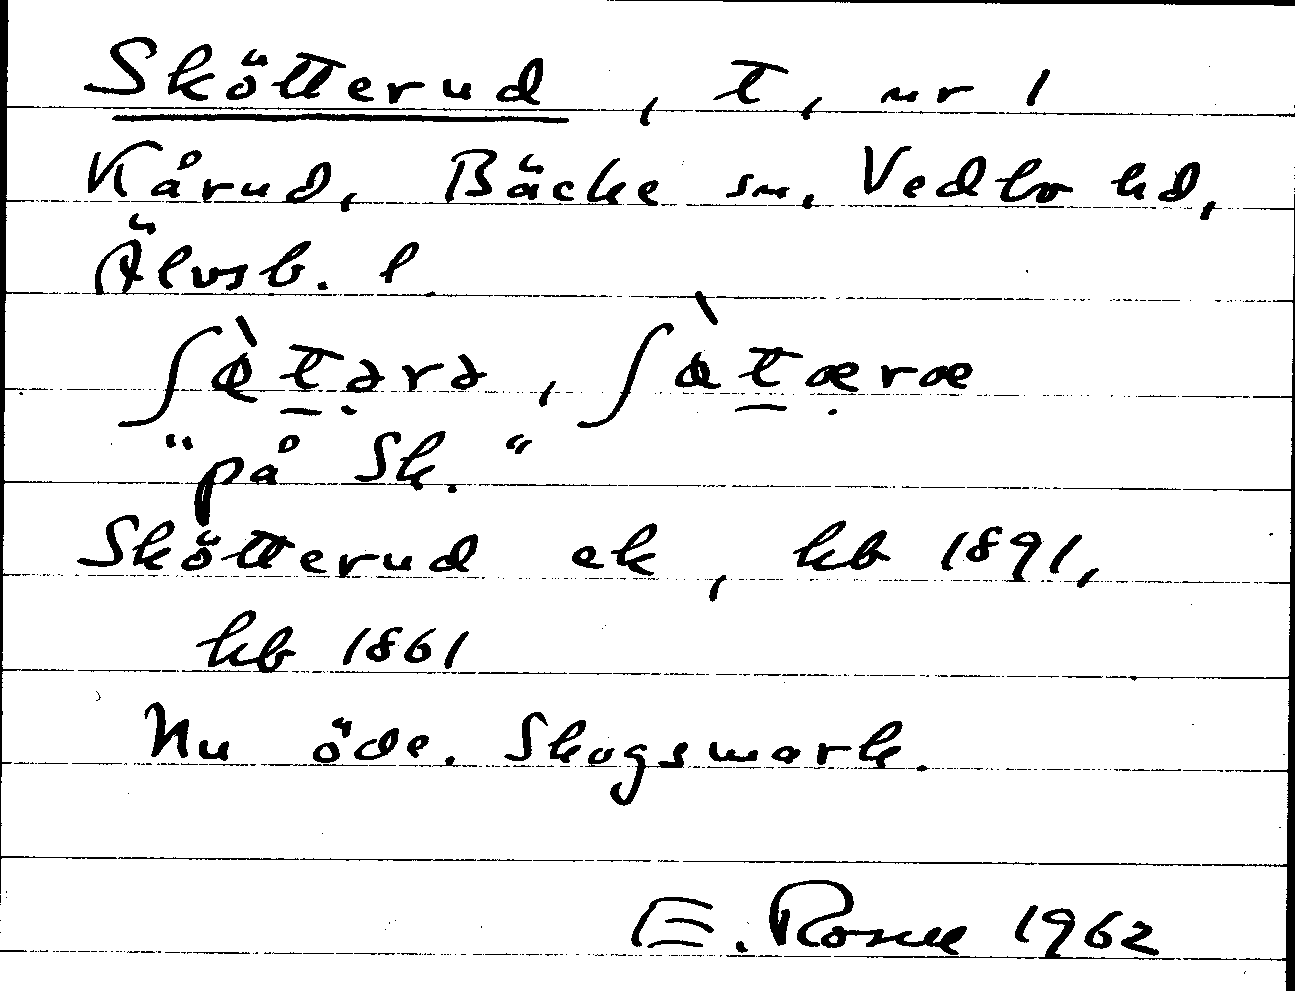 Skötterud, t, nr 1
Kårud, Bäcke sn, Vedbo hd,
Älvsb. l.
"på Sk."
Skötterud ek, kb 1891,
kb 1861
Nu öde. Skogsmark.
E. 1962